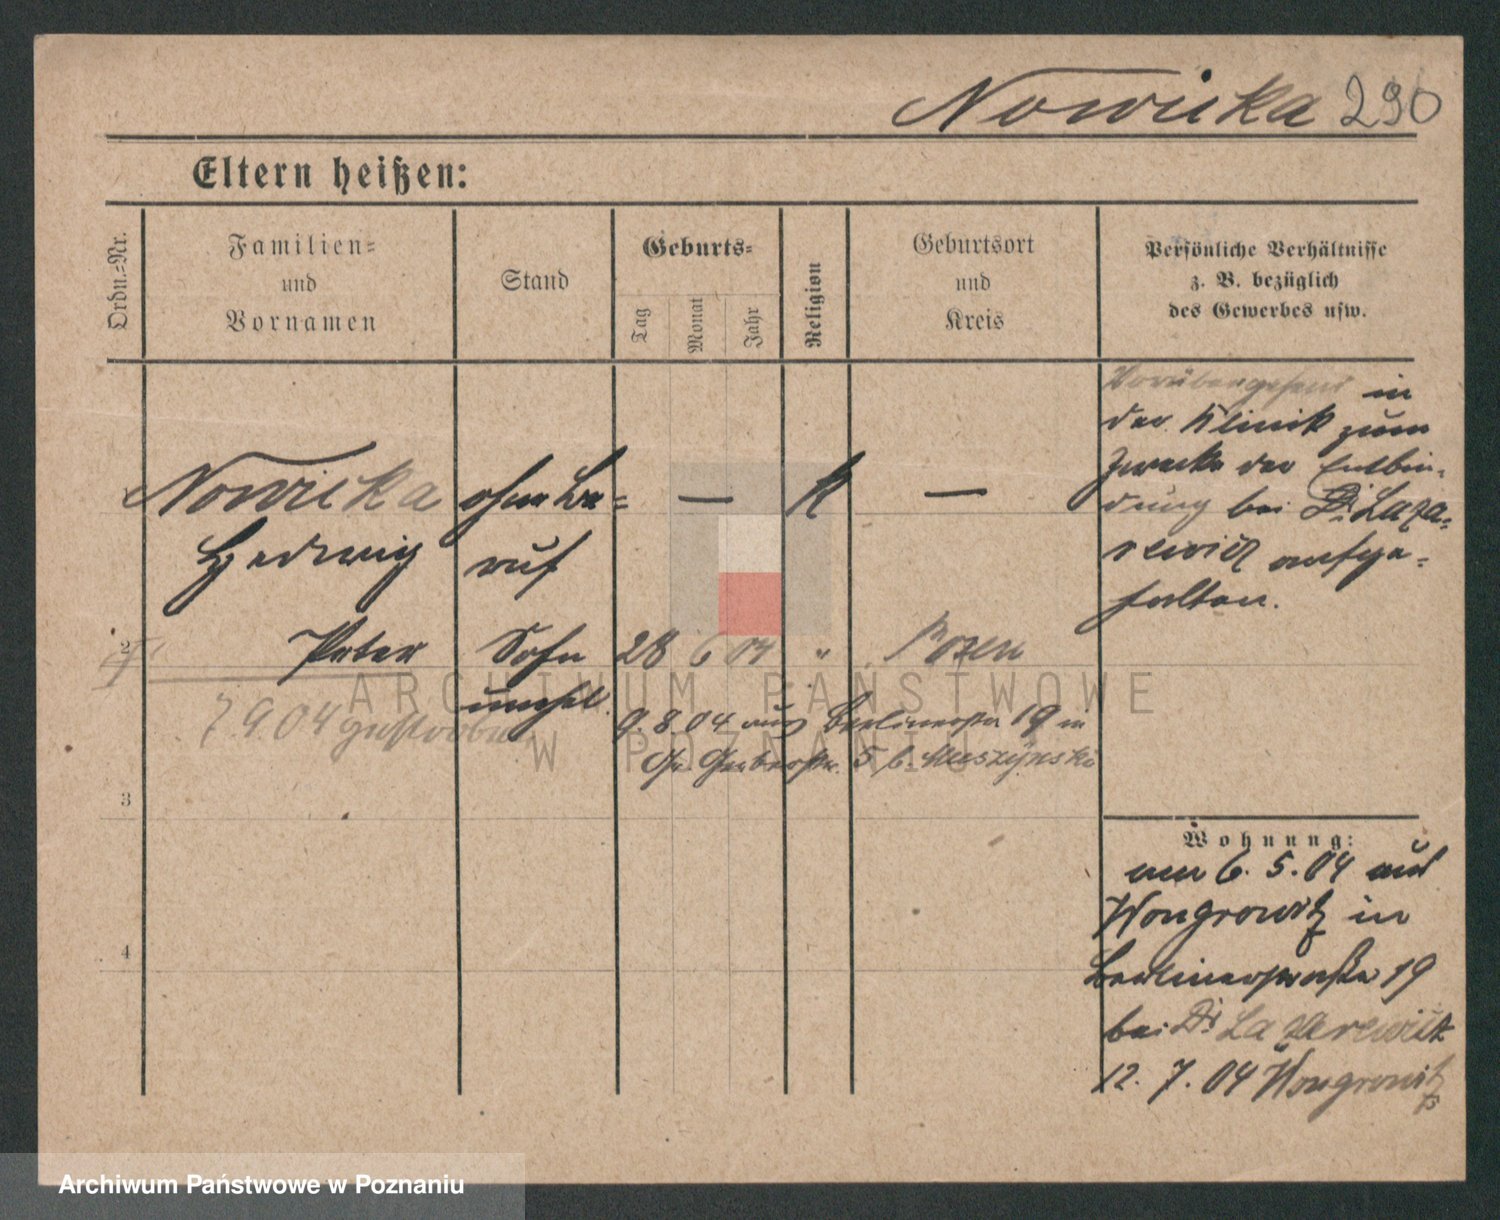 Nowicka 290
Eltern heißen:
Ordn.=Nr.
Familien=
und
Vornamen
Stand
Geburts=
Tag
Monat
Jahr
Religion
Geburtsort
und
Kreis
Persönliche Verhältnisse
z. B. bezüglich
des Gewerbes usw.
Nowicka ohne Be= — K —
Hedwig ruf
Vorübergehend in
der Klinik zum
Zwecke der Entbin-
dung bei Dr. Laza-
rewicz aufge-
halten.
2 Peter Sohn 28 6 04 " Posen
unehel.
7.9.04 gestorben
9.8.04 aus Berlinerstr 19 n
Gr. Gerberstr. 5 b.
3
4
Wohnung:
am 6. 5. 04 aus
Wongrowitz in
Berlinerstraße 19
bei Dr Lazarewicz
12. 7. 04 Wongrowitz
ARCHIWUM PAŃSTWOWE
W POZNANIU
Archiwum Państwowe w Poznaniu